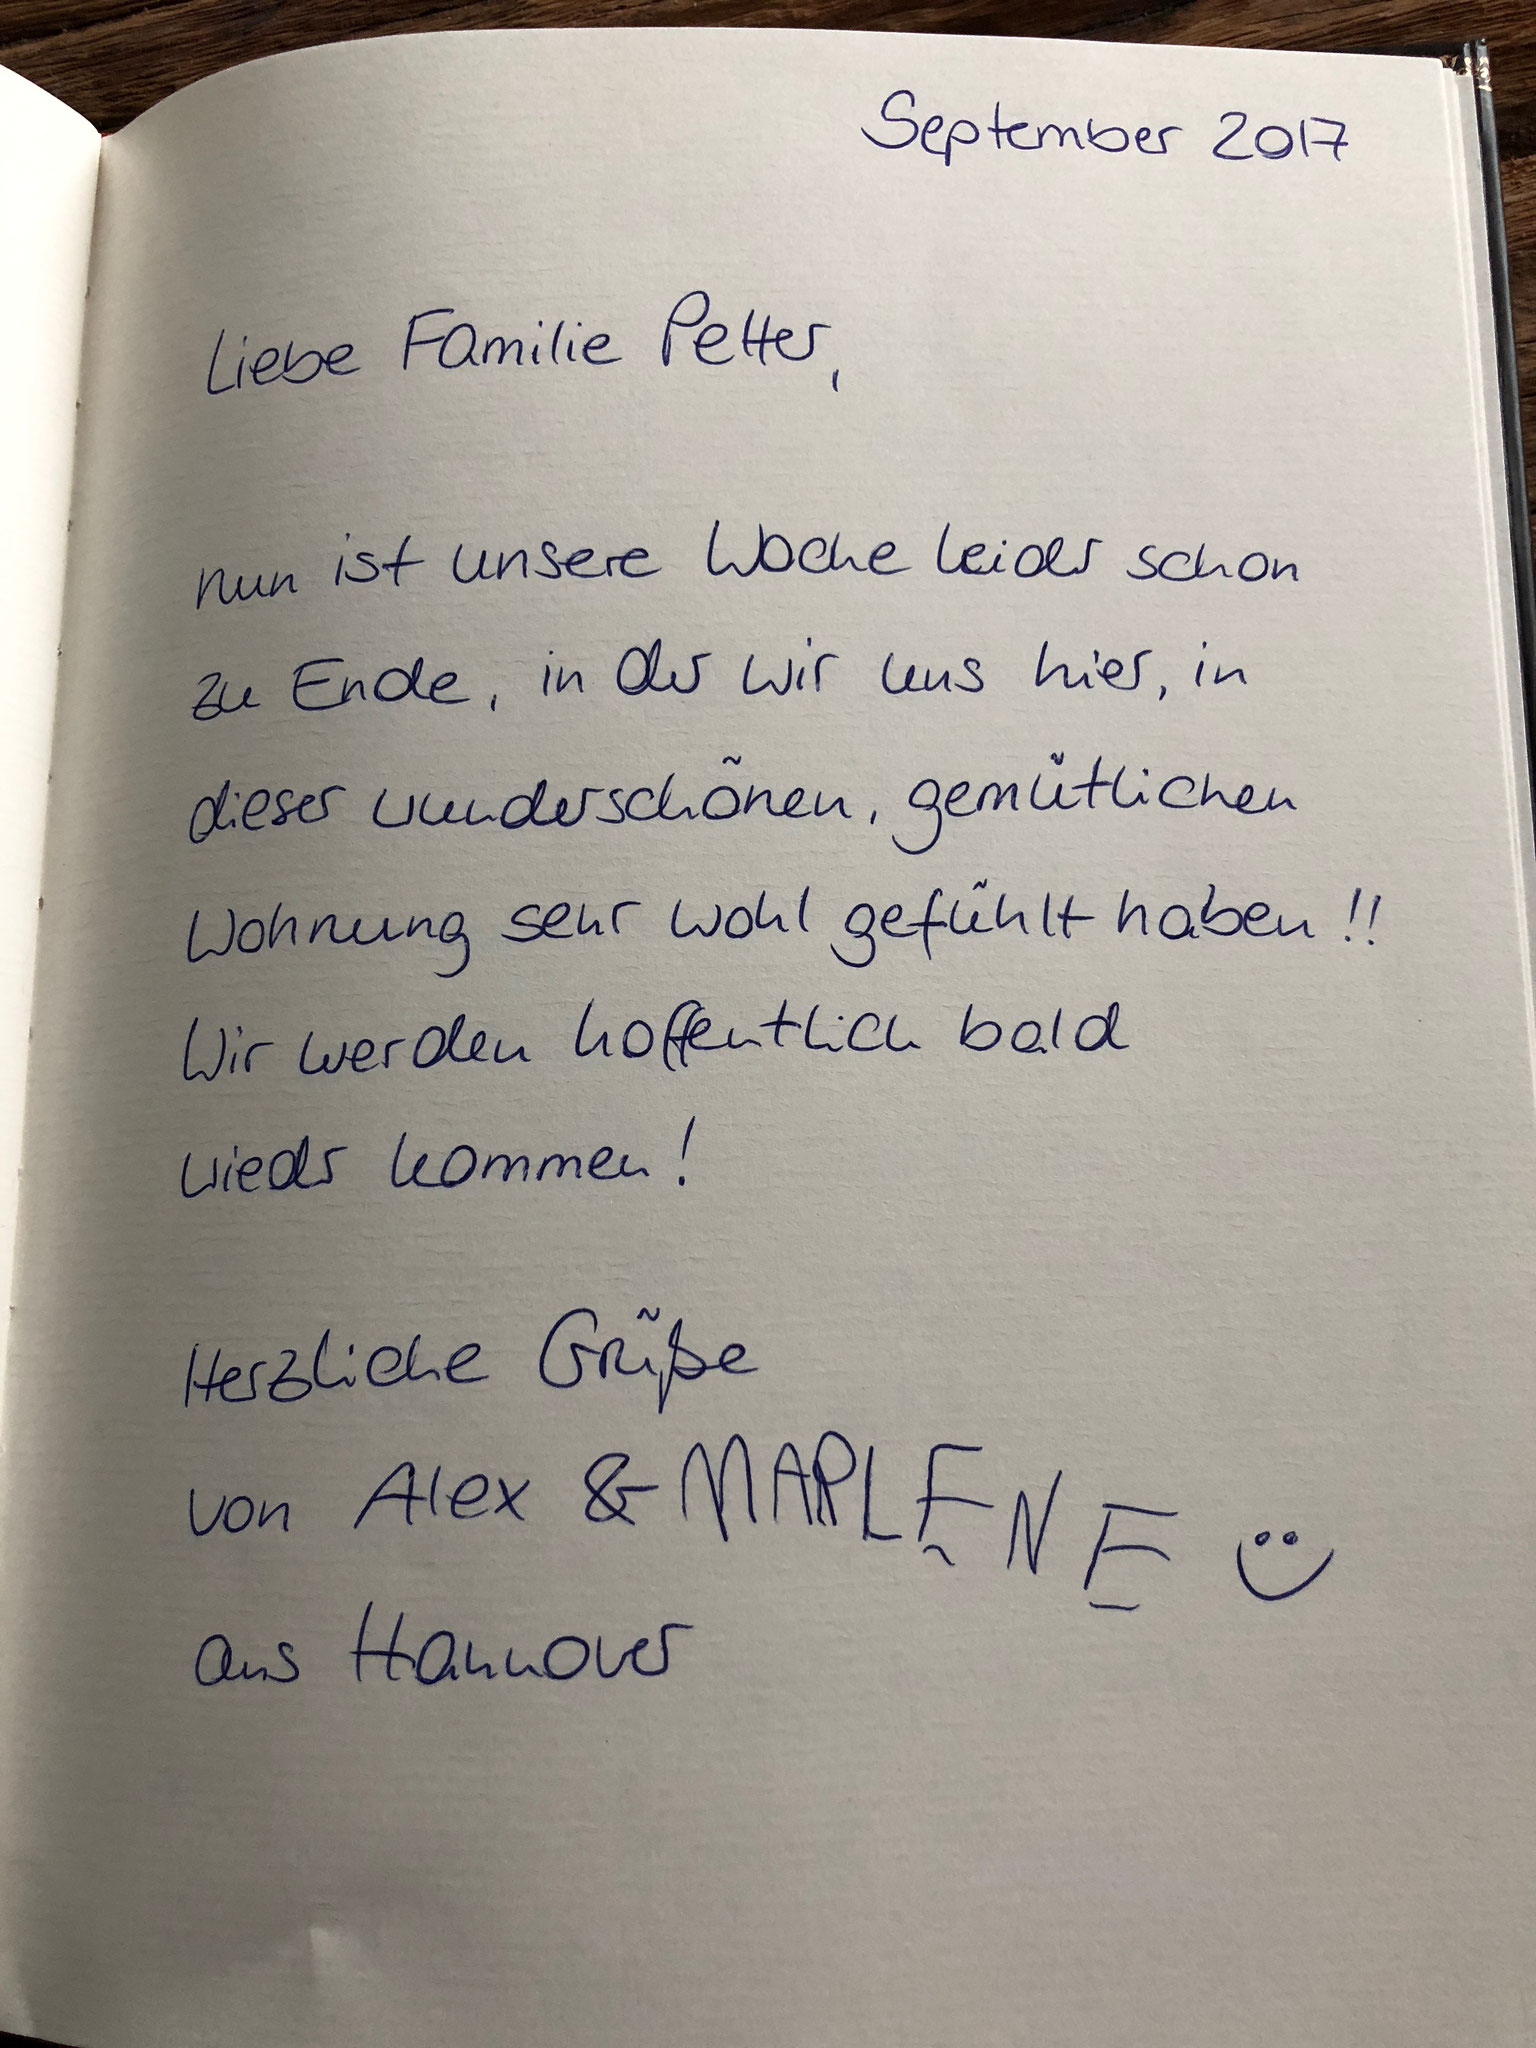 September 2017
Liebe Familie Petter,
nun ist unsere Woche leider schon
zu Ende, in der wir uns hier, in
dieser wunderschönen, gemütlichen
Wohnung sehr wohl gefühlt haben!!
Wir werden hoffentlich bald
wieder kommen!
Herzliche Grüße
von Alex & MARLENE
aus Hannover